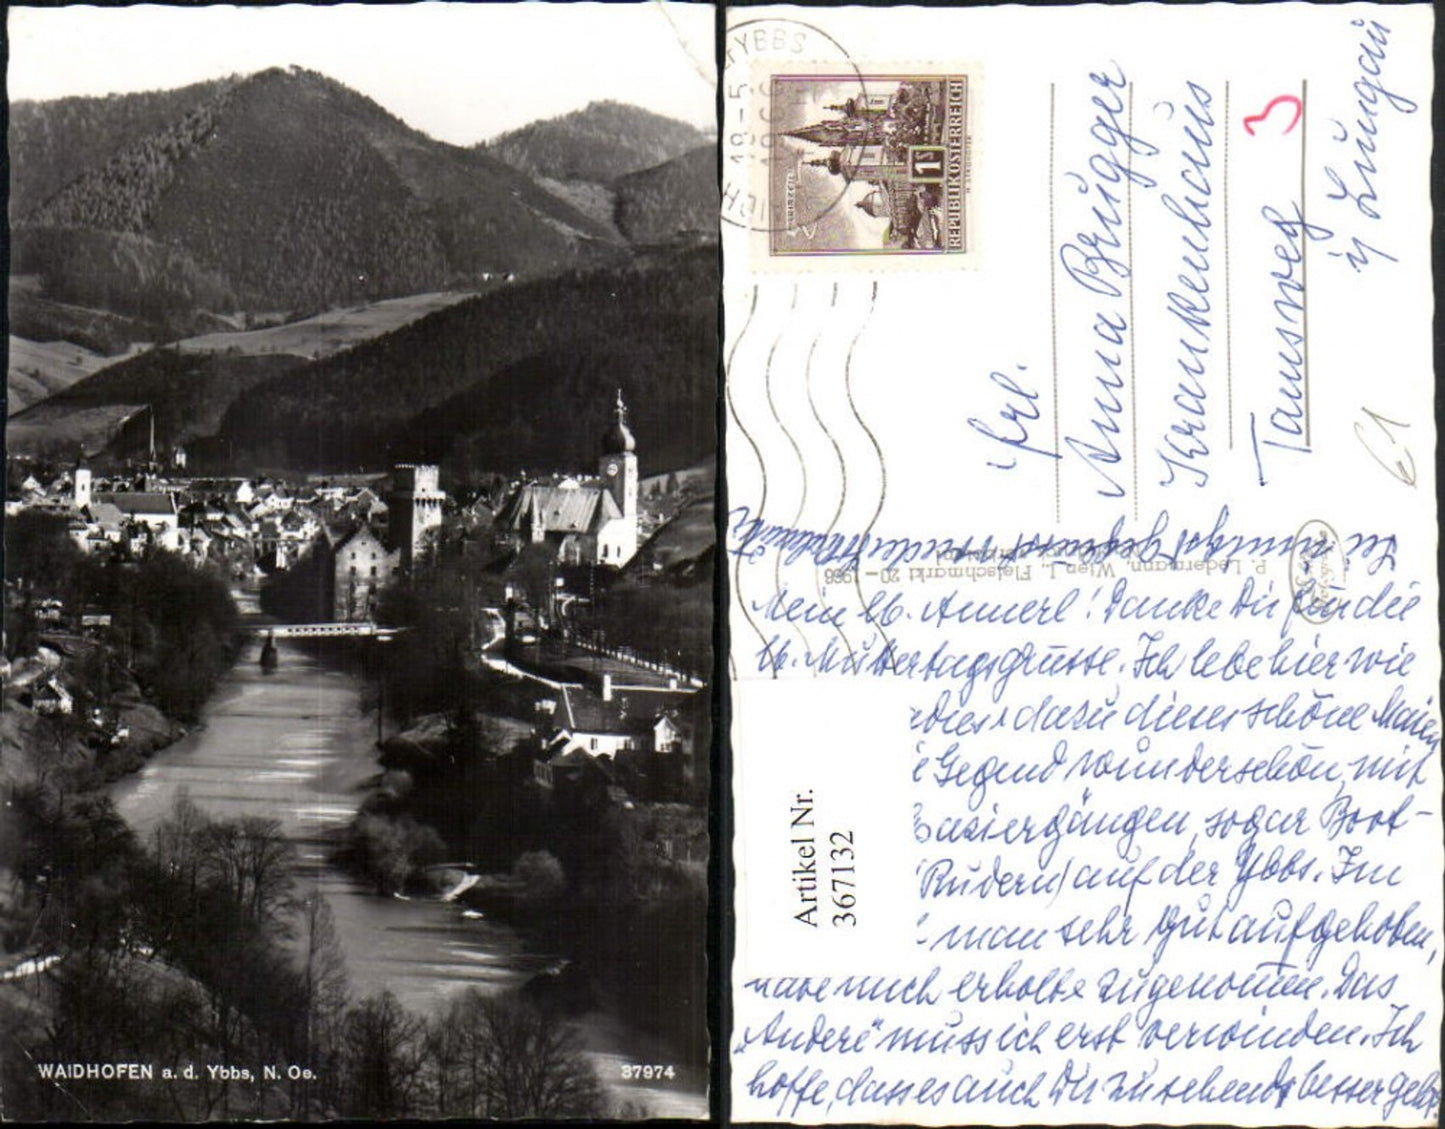 WAIDHOFEN a. d. Ybbs, N. Oe.
37974
YBBS
18.-5.
REPUBLIK ÖSTERREICH
1S
MARIAZELL
Frl.
Anna Brugger
Krankenhaus
Tamsweg
i/ Lungau
3
€1
P. Ledermann, Wien I., Fleischmarkt 20 – 1966
Sei innigst gegrüsst
Mein lb. Annerl! Danke Dir für die
lb. Muttertagsgrüsse. Ich lebe hier wie
dazu dieser schöne Maien
Gegend wunderschön, mit
Spaziergängen, sogar Boot-
(Rudern) auf der Ybbs. Im
man sehr gut aufgehoben,
habe mich erholt u zugenommen. Das
„Andere" muss ich erst verwinden. Ich
hoffe, dass es auch Dir zusehends besser geht.
Artikel Nr.
367132